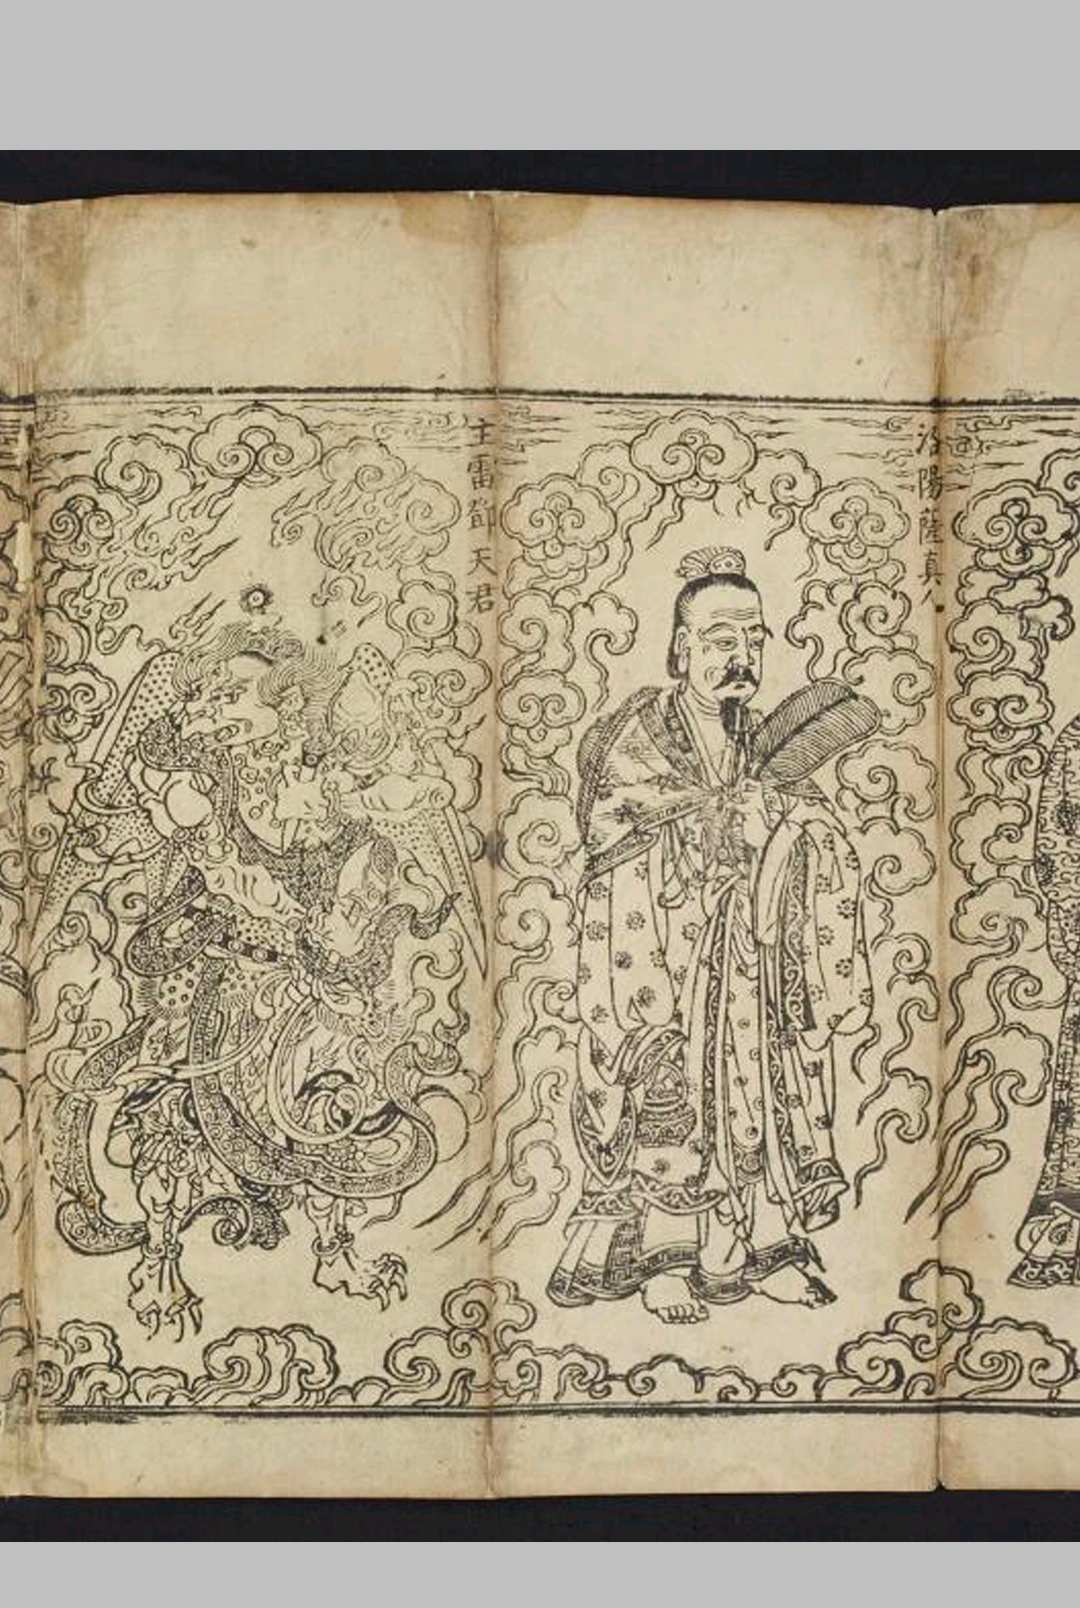 洛陽薩真人
主雷鄧天君